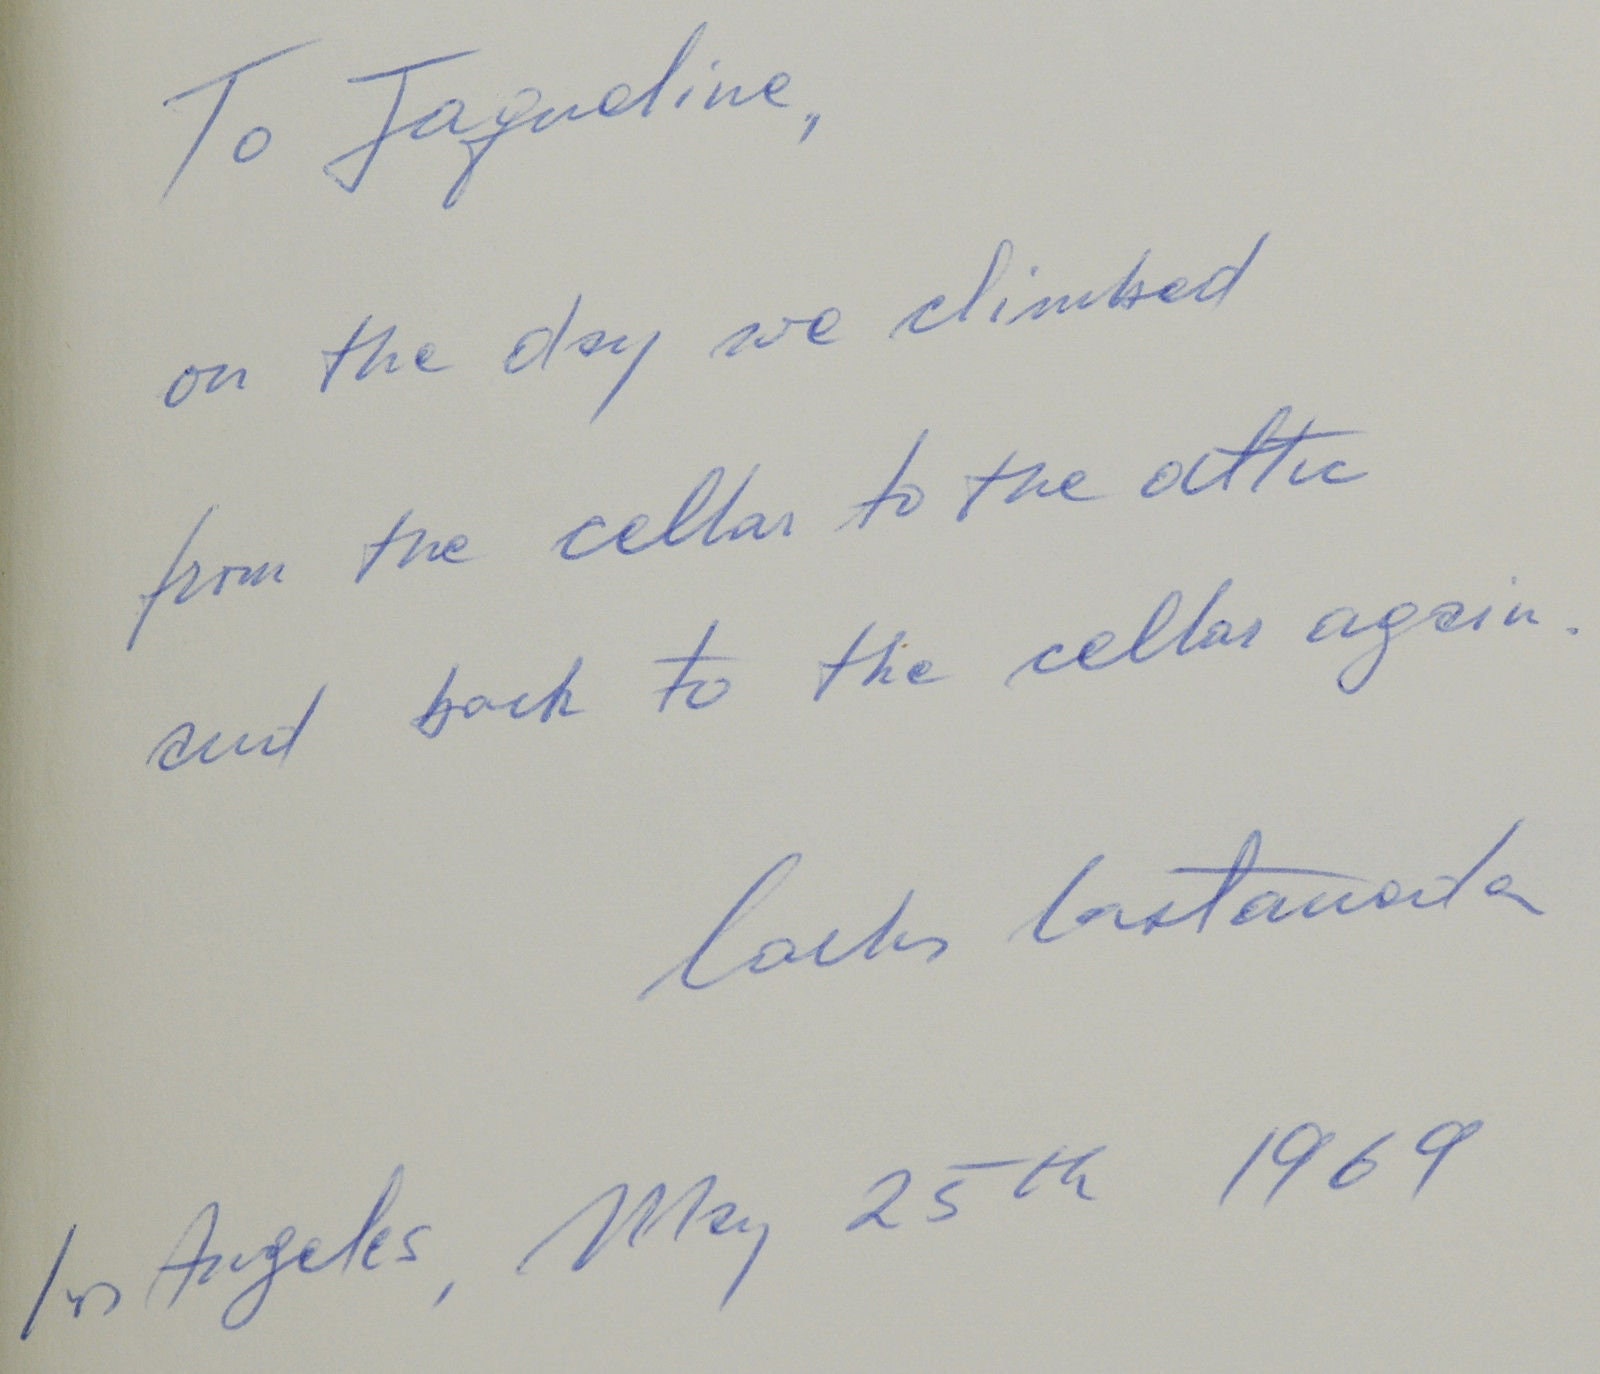 To Jaqueline,
on the day we climbed
from the cellar to the attic
and back to the cellar again.
Carlos Castaneda
Los Angeles, May 25th 1969